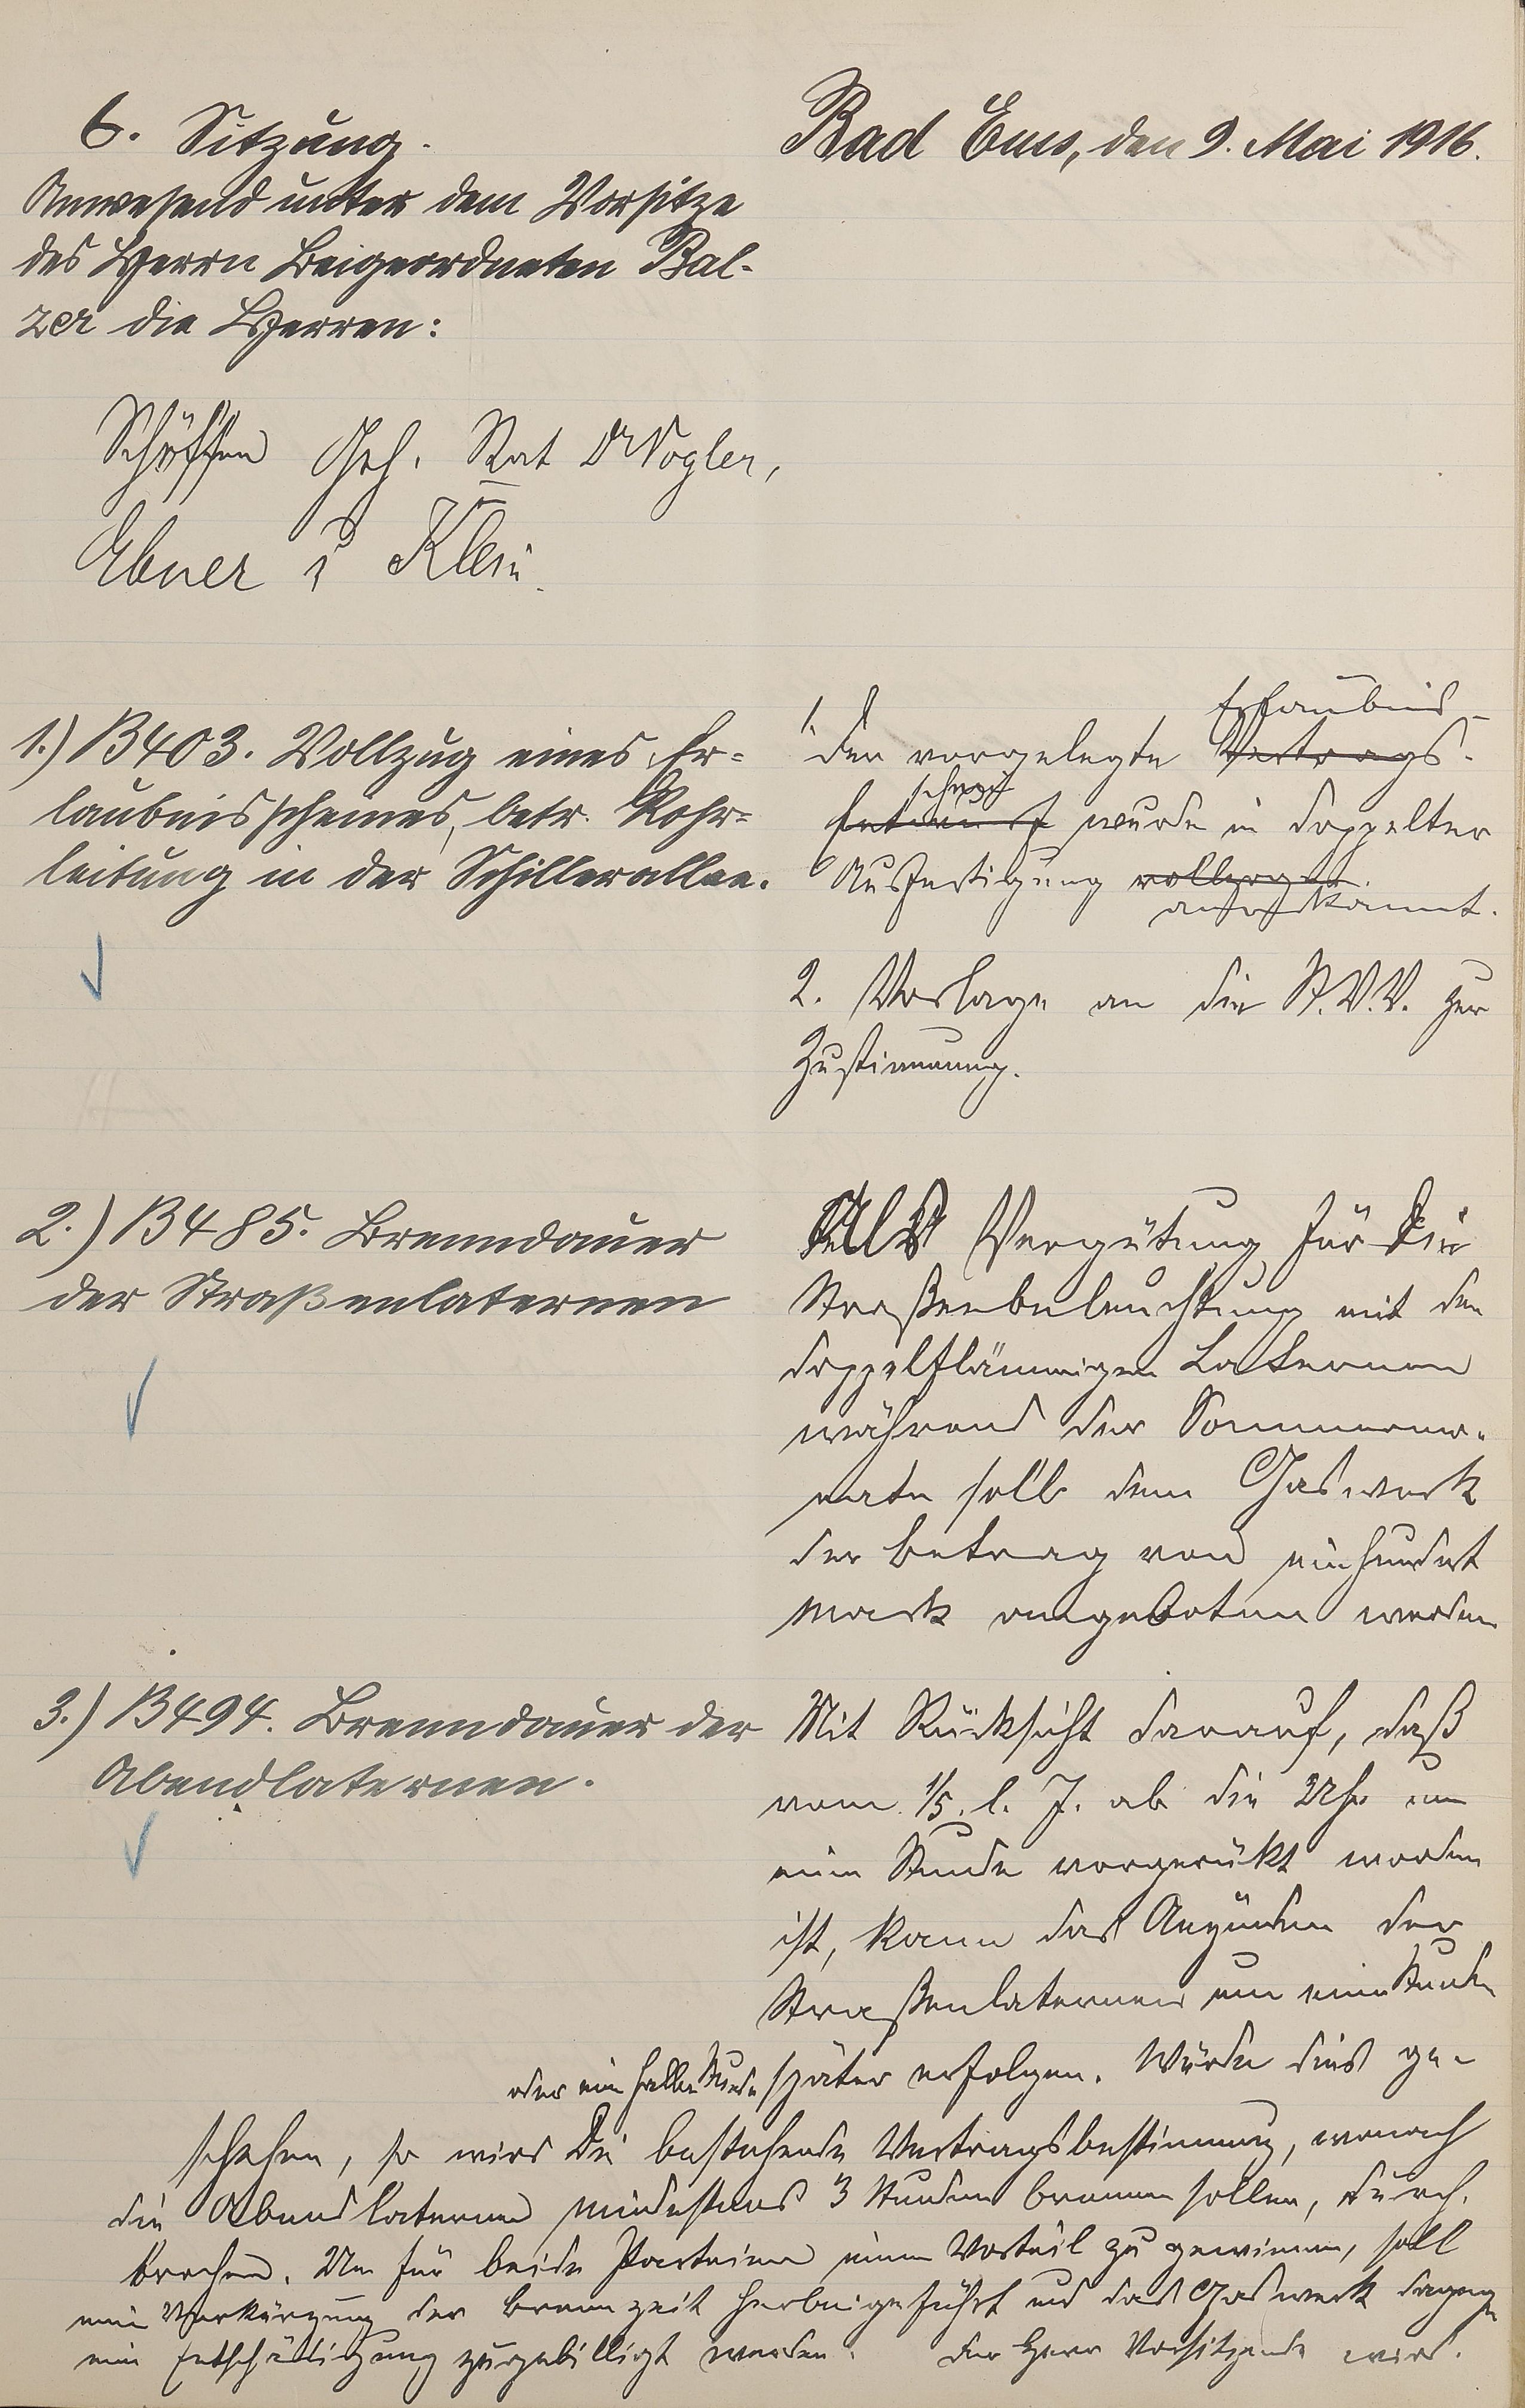 6. Sitzung.
Bad Ems, den 9. Mai 1916.
Anwesend unter dem Vorsitze
des Herrn Beigeordneten Bal-
zer die Herren:
Schöffen Geh. Rat Dr Vogler,
Ebner u Klein.
1.) B403. Vollzug eines Er-
laubnisscheines, betr. Rohr-
leitung in der Schillerallee.
Erlaubnis-
1. Der vorgelegte Vertrags-
schein
Entwurf wurde in doppelter
Ausfertigung vollzogen.
anerkannt.
2. Vorlage an die St.V.V. zur
Zustimmung.
2.) B485. Brenndauer
der Straßenlaternen
Als Vergütung für die
Straßenbeleuchtung mit den
doppelflammigen Laternen
während der Sommermo-
nate soll dem Gaswerk
der Betrag von einhundert
Mark angeboten werden
3.) B494. Brenndauer der
Abendlaternen.
Mit Rücksicht darauf, daß
vom 1/5. l. J. ab die Uhr um
eine Stunde vorgerückt worden
ist, kann das Anzünden der
Straßenlaternen um eine Stunde
oder eine halbe Stunde später erfolgen. Würde dies ge-
schehen, so wird die bestehende Vertragsbestimmung, wonach
die Abendlaternen mindestens 3 Stunden brennen sollen, durch-
brochen. Um für beide Parteien einen Vorteil zu gewinnen, soll
eine Verkürzung der Brennzeit herbeigeführt und das Gaswerk dagegen
eine Entschädigung zugebilligt werden. Der Herr Vorsitzende wird